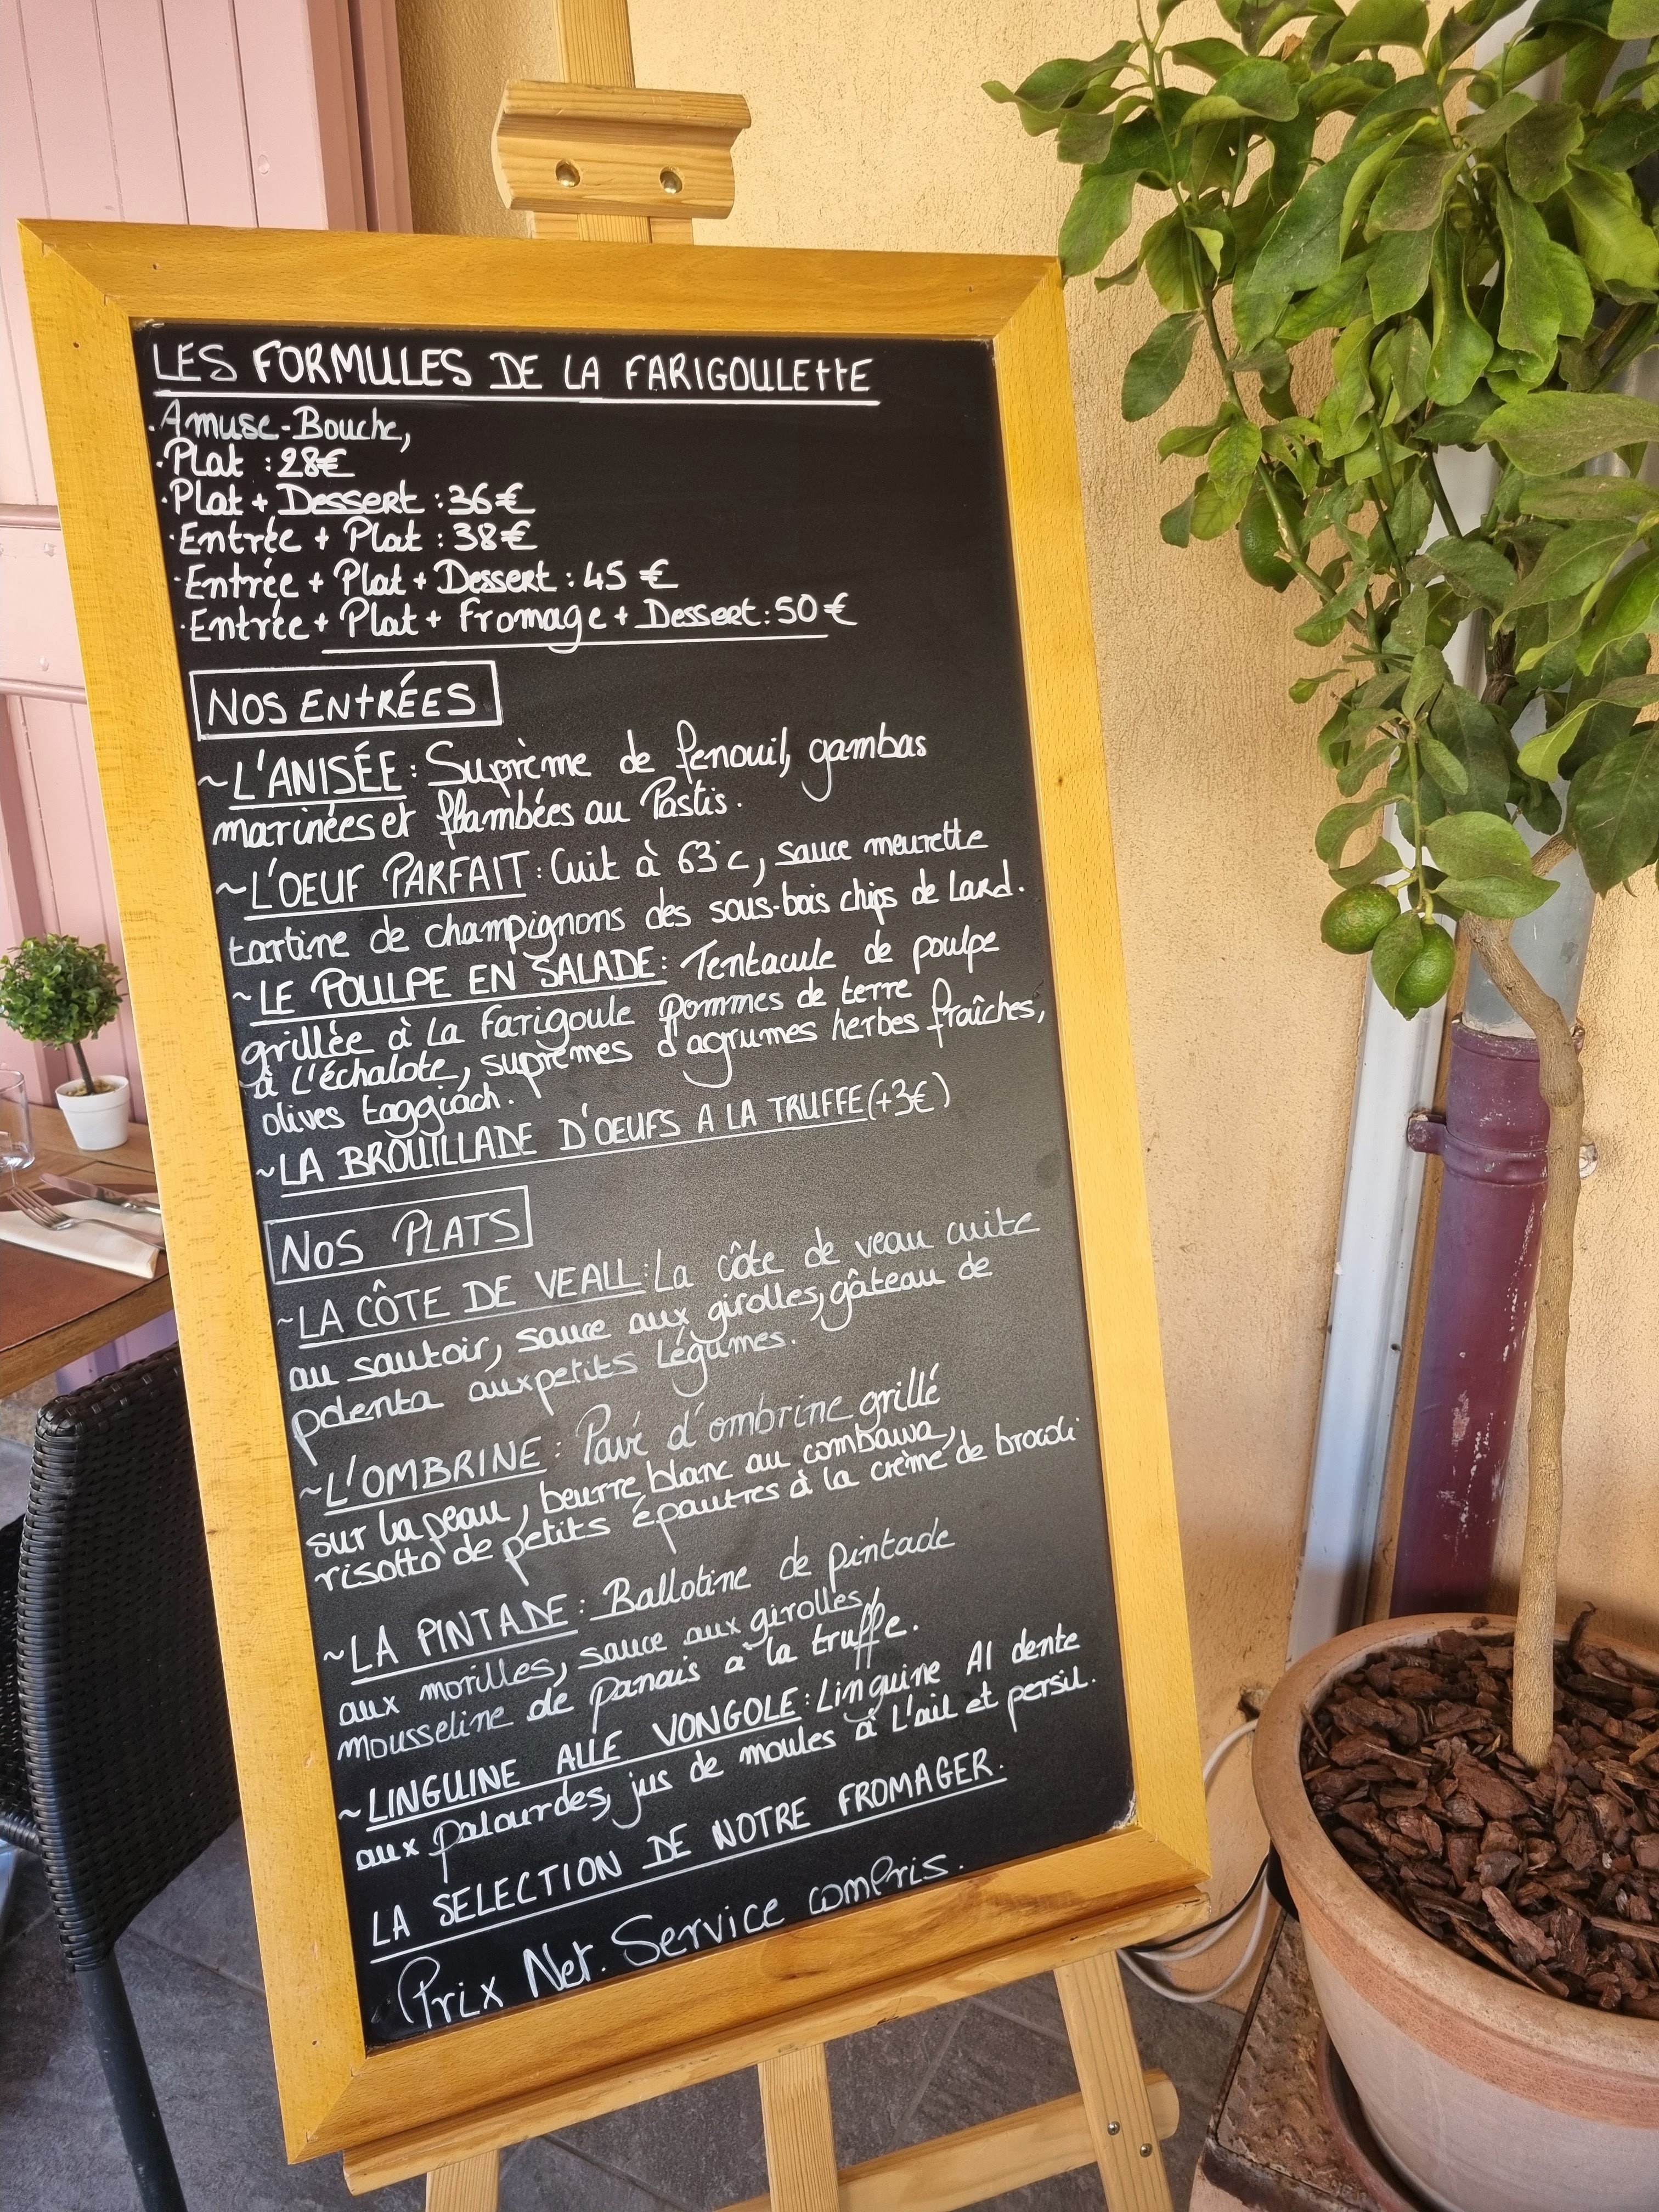 LES FORMULES DE LA FARIGOULETTE
·Amuse-Bouche,
·Plat : 28€
·Plat + Dessert : 36€
·Entrée + Plat : 38€
·Entrée + Plat + Dessert : 45 €
·Entrée + Plat + Fromage + Dessert : 50 €
NOS ENTRÉES
~L'ANISÉE : Suprème de fenouil, gambas
marinées et flambées au Pastis.
~L'OEUF PARFAIT : Cuit à 63°c, sauce meurette
tartine de champignons des sous-bois chips de Lard.
~LE POULPE EN SALADE : Tentacule de poulpe
grillée à La Farigoule pommes de terre
à L'échalote, suprêmes d'agrumes herbes fraîches,
olives taggiach.
~LA BROUILLADE D'OEUFS A LA TRUFFE (+3€)
NOS PLATS
~LA CÔTE DE VEAU : La côte de veau cuite
au sautoir, sauce aux girolles, gâteau de
polenta aux petits Légumes.
~L'OMBRINE : Pavé d'ombrine grillé
sur la peau, beurre blanc au combawa,
risotto de petits épautres à la crème de brocoli
~LA PINTADE : Ballotine de pintade
aux morilles, sauce aux girolles,
mousseline de panais à la truffe.
~LINGUINE ALLE VONGOLE : Linguine Al dente
aux palourdes, jus de moules à L'ail et persil.
LA SELECTION DE NOTRE FROMAGER.
Prix Net. Service compris.